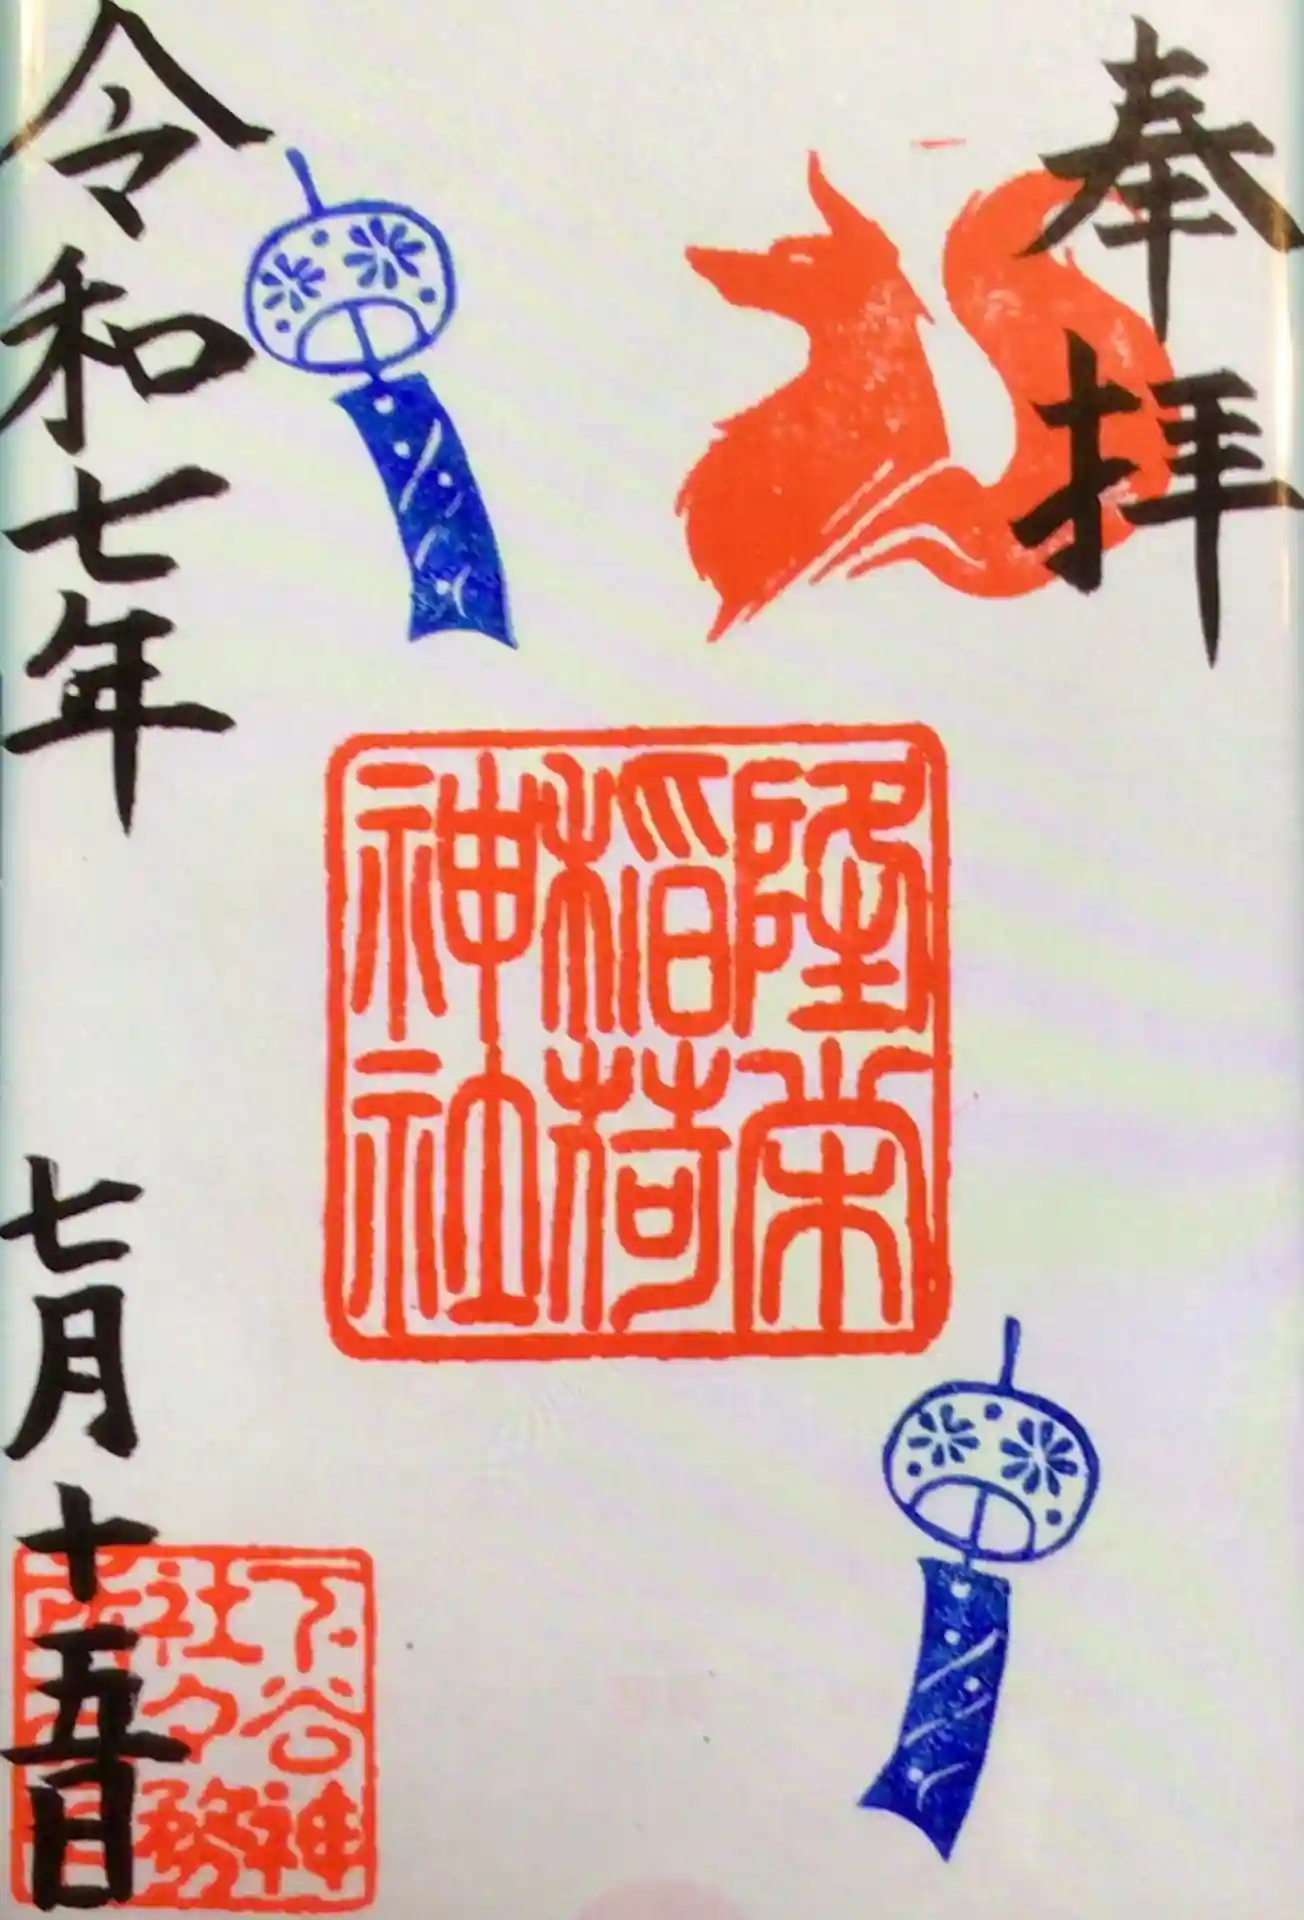 奉拝
隆栄
稲荷
神社
令和七年 七月十五日
下谷神
社々務